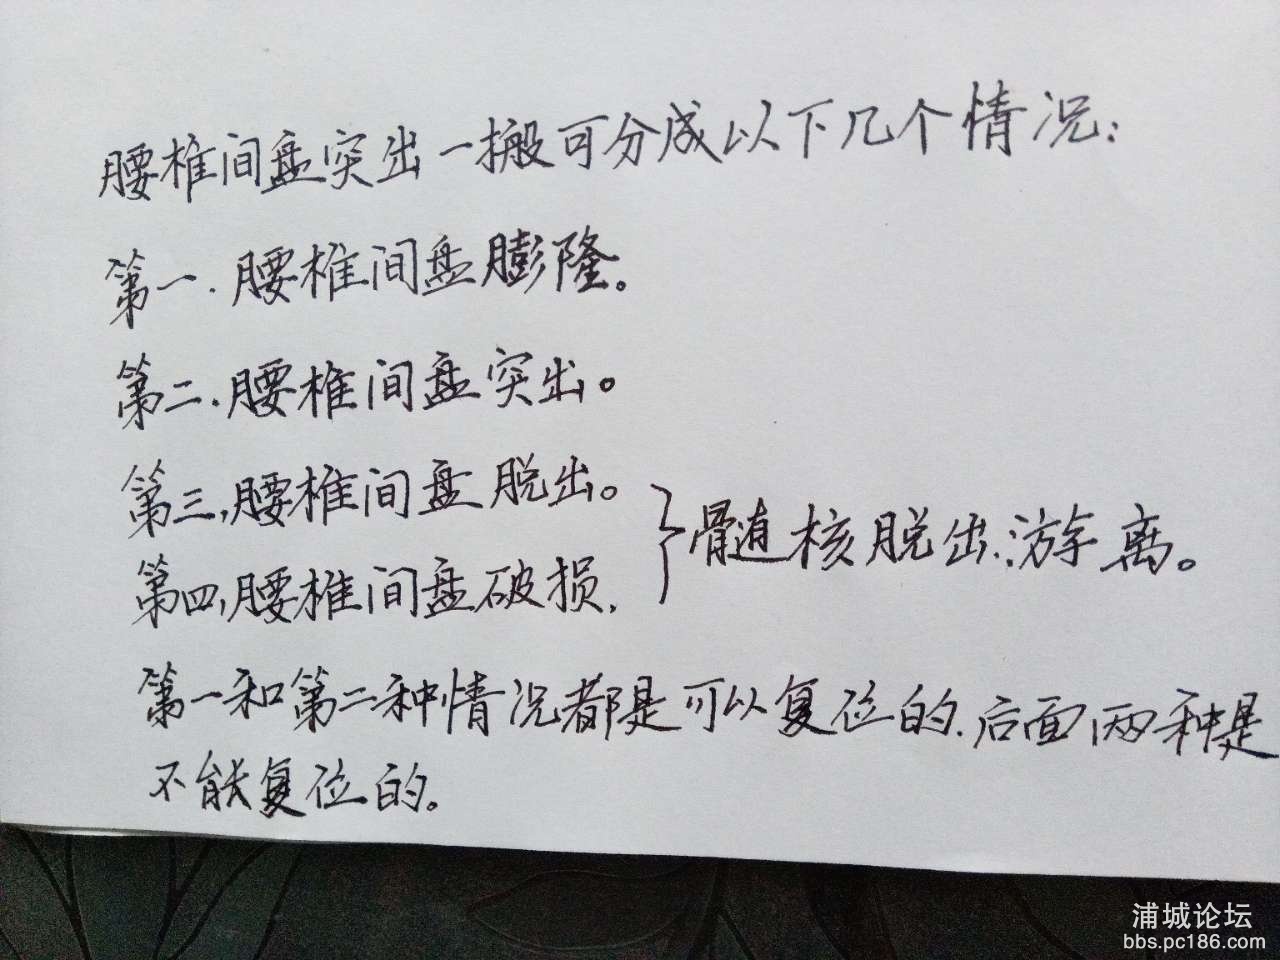 腰椎间盘突出一搬可分成以下几个情况：
第一.腰椎间盘膨隆。
第二.腰椎间盘突出。
第三,腰椎间盘脱出。
第四,腰椎间盘破损,
}髓核脱出.游离。
第一和第二种情况都是可以复位的.后面两种是
不能复位的。
浦城论坛
bbs.pc186.com